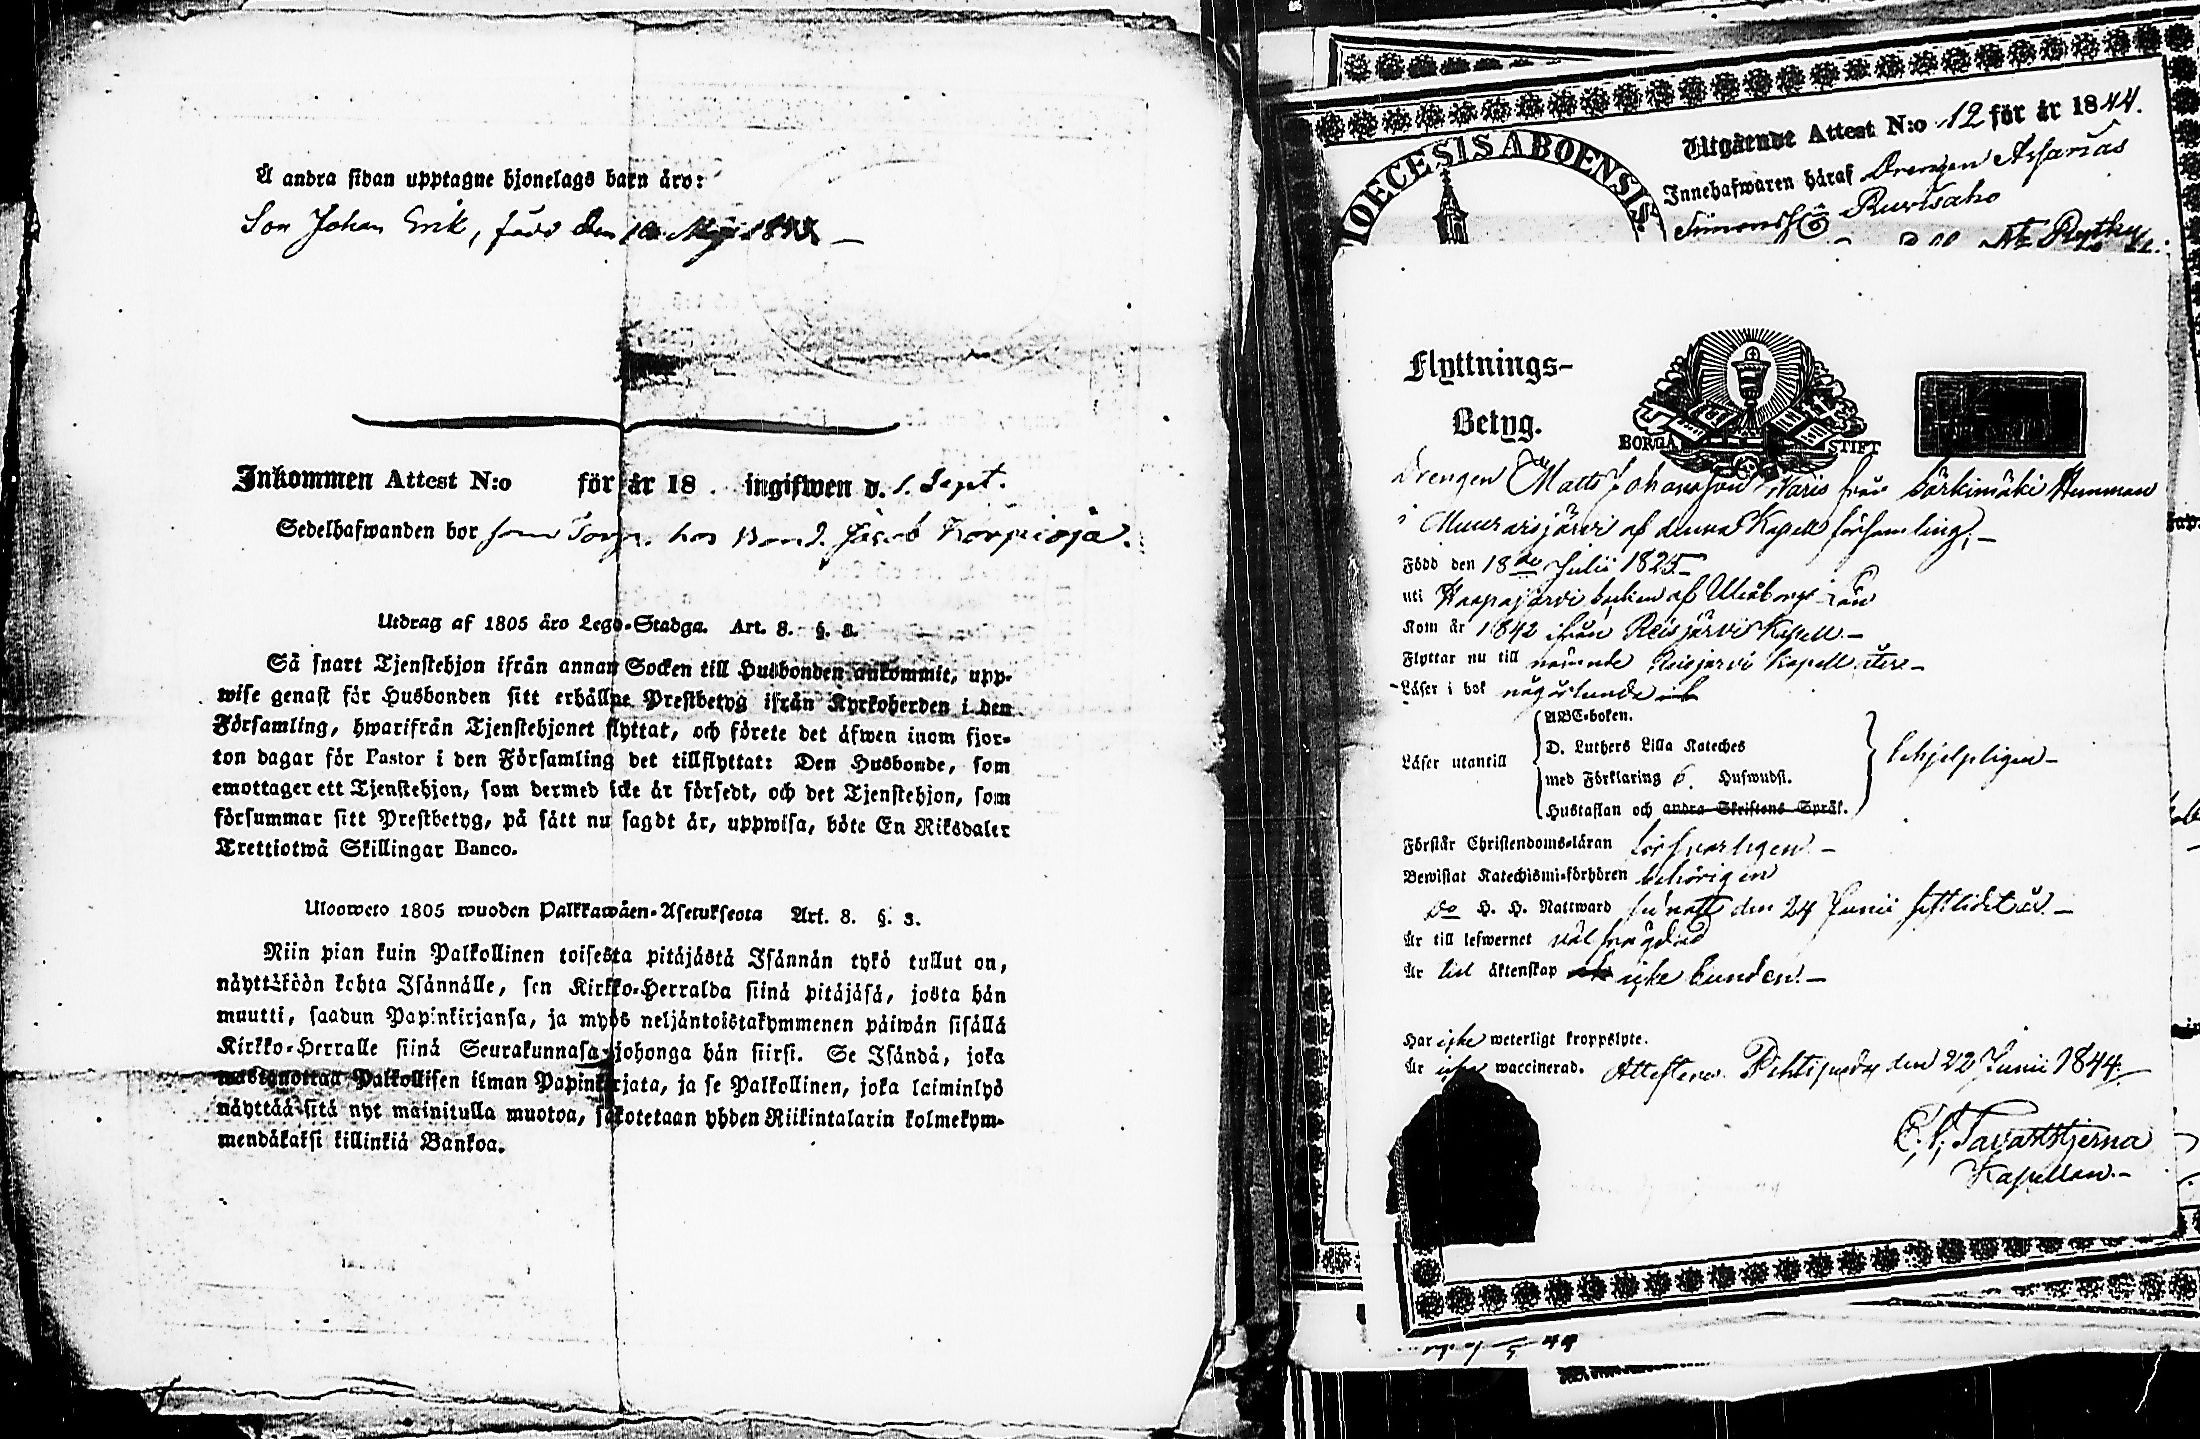 Å andra sidan upptagne hjonelags barn äro:
Son Johan Erik, född den 10 Maji 18
Inkommen Attest N:o för år 18 . ingifwen d. 1. Sept.
Sedelhafwanden bor som Torp. hos Bond. Jacob Korpioja.
Utdrag af 1805 års Lego-Stadga. Art. 8. §. 3.
Så snart Tjenstehjon ifrån annan Socken till Husbonden ankommit, upp-
wise genast för Husbonden sitt erhållne Prestbetyg ifrån Kyrkoherden i den
Församling, hwarifrån Tjenstehjonet flyttat, och förete det äfwen inom fjor-
ton dagar för Pastor i den Församling det tillflyttat: Den Husbonde, som
emottager ett Tjenstehjon, som dermed icke är försedt, och det Tjenstehjon, som
försummar sitt Prestbetyg, på sätt nu sagdt är, uppwisa, böte En Riksdaler
Trettiotwå Skillingar Banco.
Uloosweto 1805 wuoden Palkkawäen-Asetuksesta Art. 8. §. 3.
Niin pian kuin Palkollinen toisesta pitäjästä Isännän tykö tullut on,
näyttäköön kohta Isännälle, sen Kirkko-Herralda siinä pitäjäsä, josta hän
muutti, saadun Papinkirjansa, ja myös neljäntoistakymmenen päiwän sisällä
Kirkko-Herralle siinä Seurakunnasa johonga hän siirsi. Se Isändä, joka
wastanottaa Palkollisen ilman Papinkirjata, ja se Palkollinen, joka laiminlyö
näyttää sitä nyt mainitulla muotoa, sakotetaan yhden Riikintalarin kolmekym-
mendäkaksi killinkiä Bankoa.
DIOECESIS ABOENSIS
Utgående Attest N:o 12 för år 1844.
Innehafwaren häraf Drengen Asarias
Simonss. Ruuisaho
Flyttnings-
Betyg.
BORGÅ STIFT
Drengen Matts Johansson Karis från Särkimäki Hemman
i Muurasjärvi af denna Kapell församling;
Född den 18de Julii 1825
uti Haapajärvi Socken af Uleåborgs Län
Kom år 1842 ifrån Reisjärvi Kapell
Flyttar nu till nämnde Reisjärvi Kapell åter
Läser i bok någorlunda
ABC-boken.
D. Luthers Lilla Kateches
Läser utantill
med Förklaring 6. Hufwudst.
Hustaflan och andra Skriftens Språk.
behjelpligen
Förstår Christendoms-läran försvarligen
Bewistat Katechismi-förhören behörigen
Do H. H. Nattward sednast den 24 Junii sistlidet år
Är till lefwernet välfrägdad
Är till äktenskap icke bunden
Har icke weterligt kroppslyte.
Är icke waccinerad. Attesterar Pihtipudas den 22 Junii 1844
Tavaststjerna
Kapellan